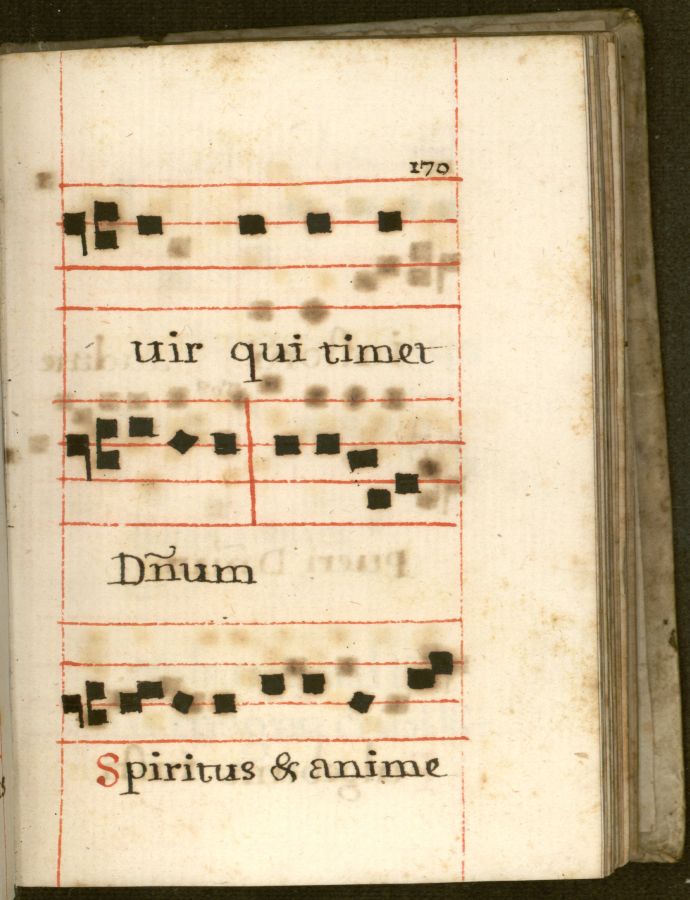 170
uir qui timet
Dñum
Spiritus & anime